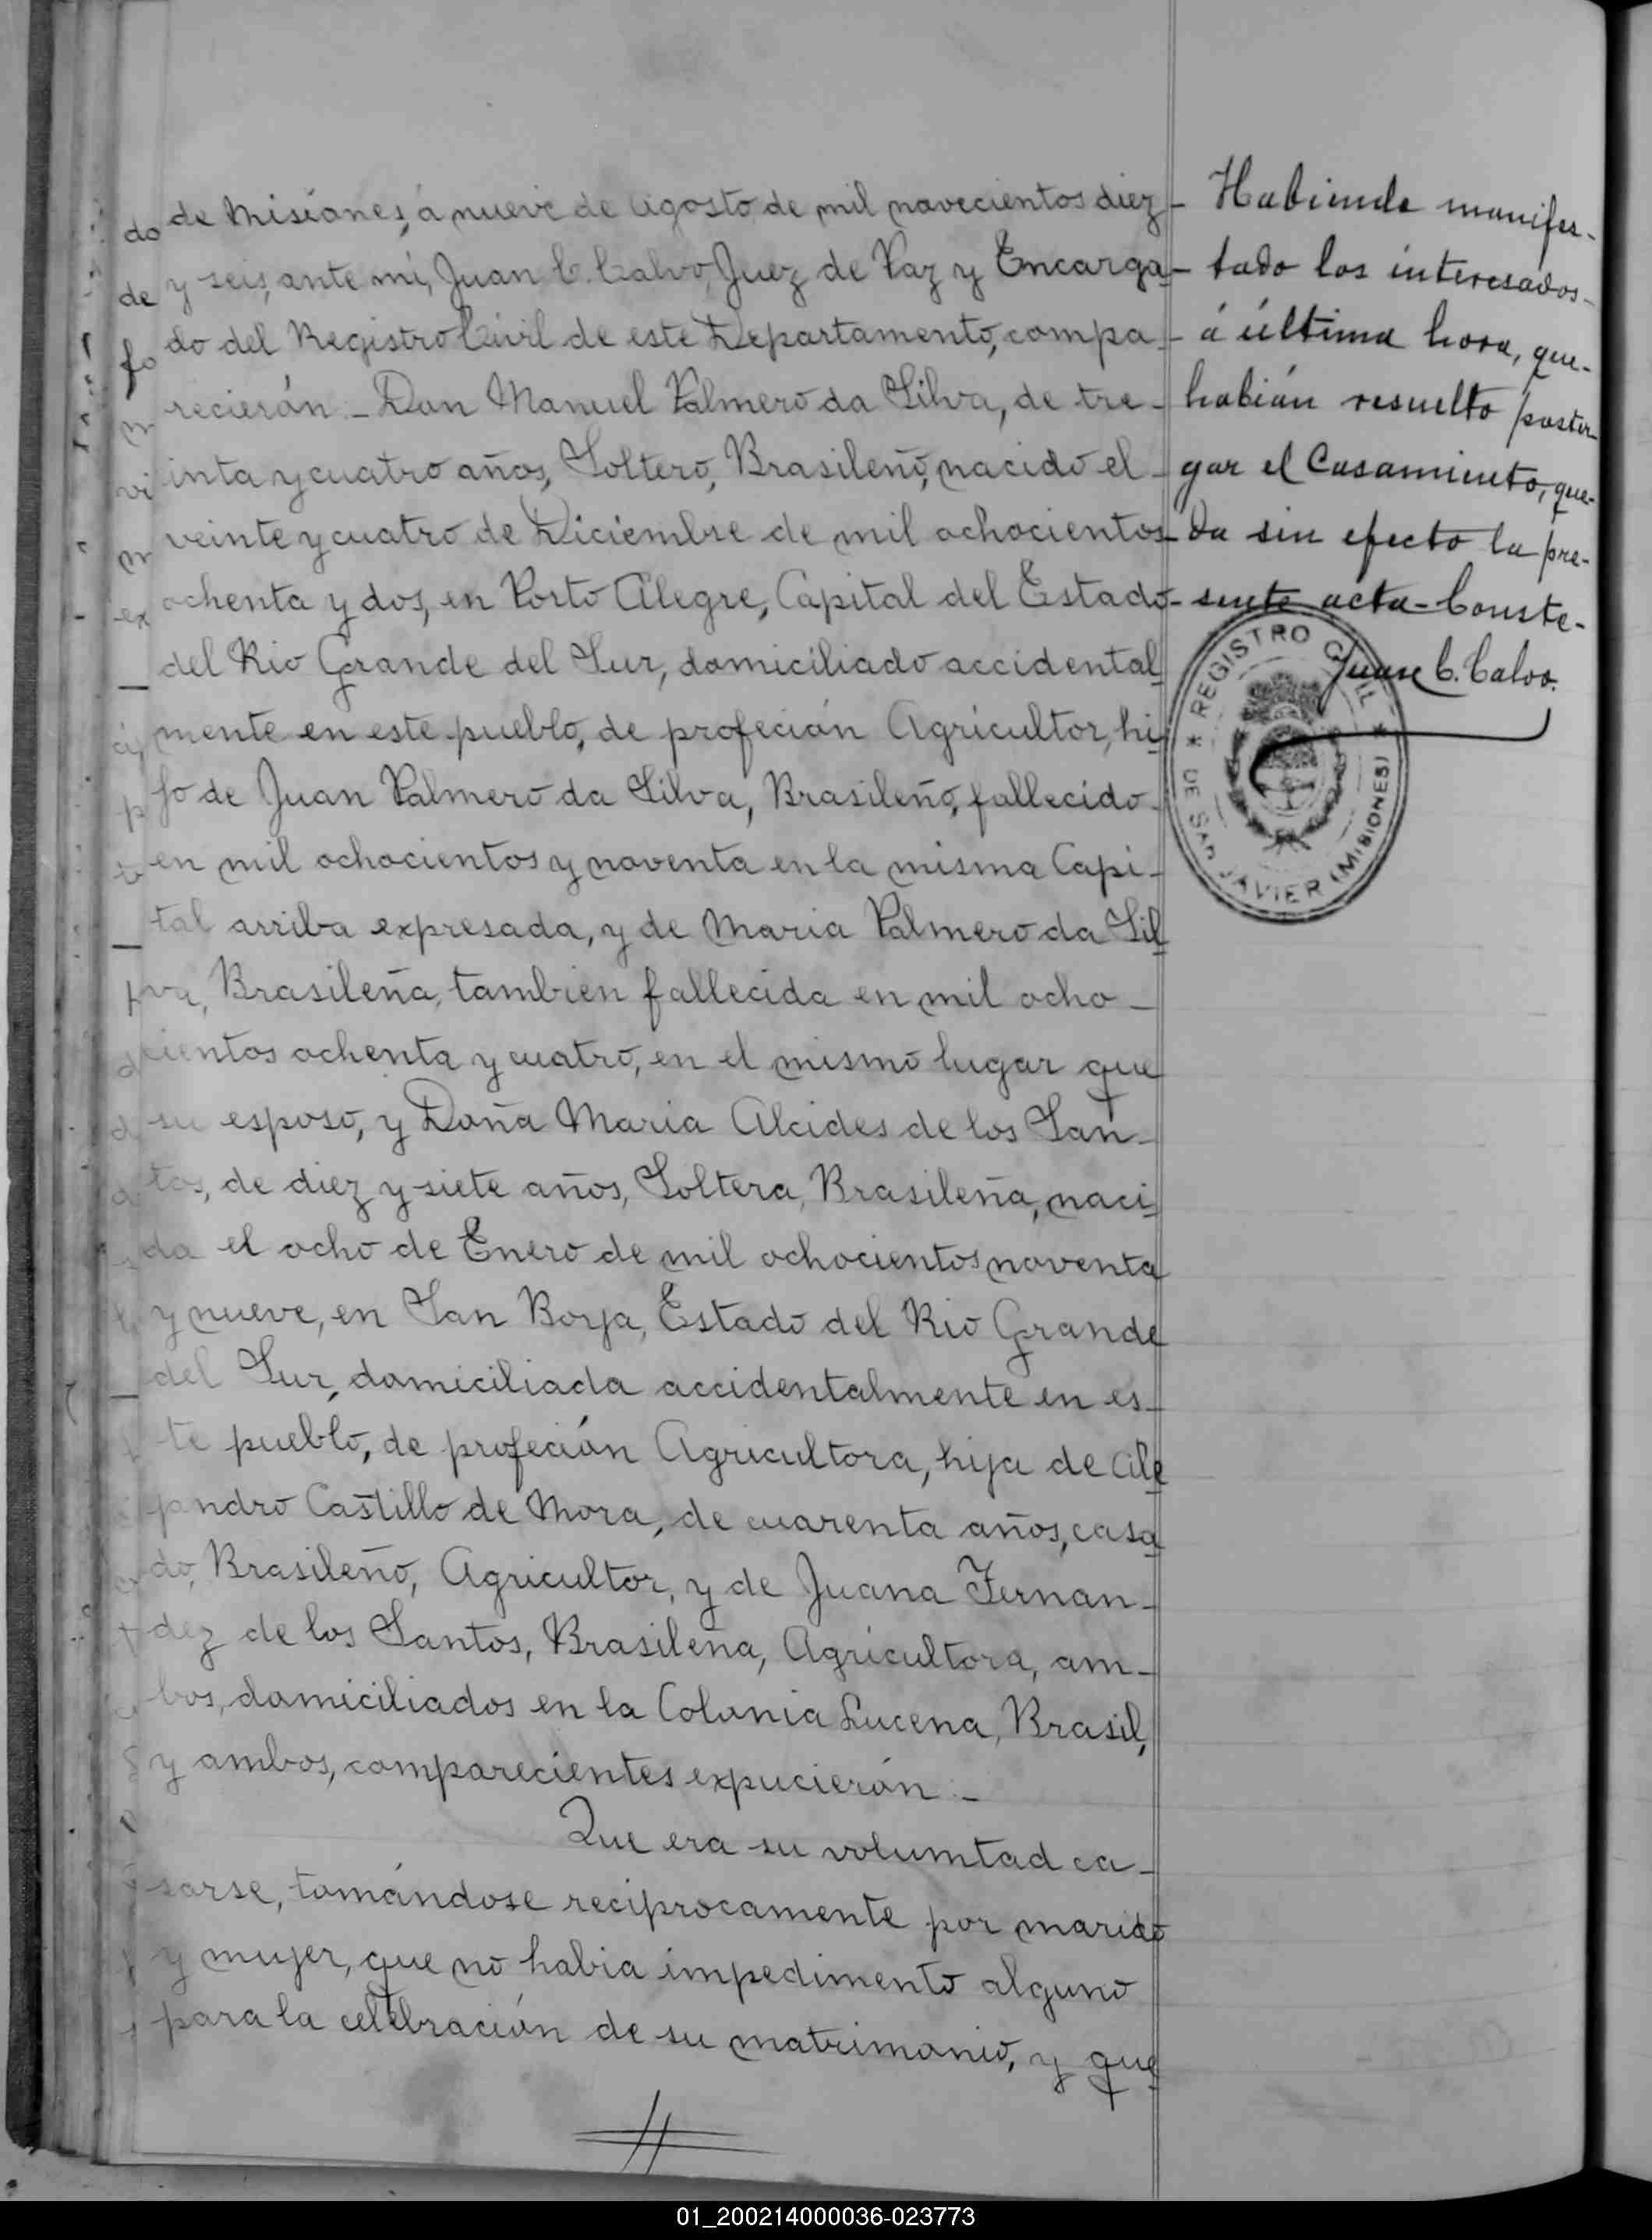 de Misiones, á nueve de Agosto de mil novecientos diez
y seis, ante mi, Juan C. Calvo, Juez de Paz y Encarga-
do del Registro Civil de este Departamento, compa-
recierón.- Don Manuel Palmero da Silva, de tre-
inta y cuatro años, Soltero, Brasileño, nacido el
veinte y cuatro de Diciembre de mil ochocientos
ochenta y dos, en Porto Alegre, Capital del Estado
del Rio Grande del Sur, domiciliado accidental
mente en este pueblo, de profeción Agricultor, hi
jo de Juan Palmero da Silva, Brasileño, fallecido
en mil ochocientos y noventa en la misma Capi-
tal arriba expresada, y de Maria Palmero da Sil
va, Brasileña, tambien fallecida en mil ocho-
cientos ochenta y cuatro, en el mismo lugar que
su esposo, y Doña Maria Alcides de los San-
tos, de diez y siete años, Soltera, Brasileña, naci
da el ocho de Enero de mil ochocientos noventa
y nueve, en San Borja, Estado del Rio Grande
del Sur, domiciliada accidentalmente en es-
te pueblo, de profeción Agricultora, hija de Ale
jandro Castillo de Mora, de cuarenta años, casa
do, Brasileño, Agricultor, y de Juana Fernan-
dez de los Santos, Brasileña, Agricultora, am-
bos, domiciliados en la Colonia Lucena, Brasil,
y ambos, comparecientes expucierón.-
Que era su volumtad ca-
sarse, tomándose reciprocamente por marido
y mujer, que no habia impedimento alguno
para la celebración de su matrimonio, y que
- Habiendo manifes-
- tado los interesados-
- á última hora, que-
habián resuelto poster-
gar el Casamiento, que-
da sin efecto la pre-
sente acta- Conste-
Juan C. Calvo.
* REGISTRO CIVIL *
DE SAN JAVIER (MISIONES)
do
de
fo
vi
m
ex
01_200214000036-023773